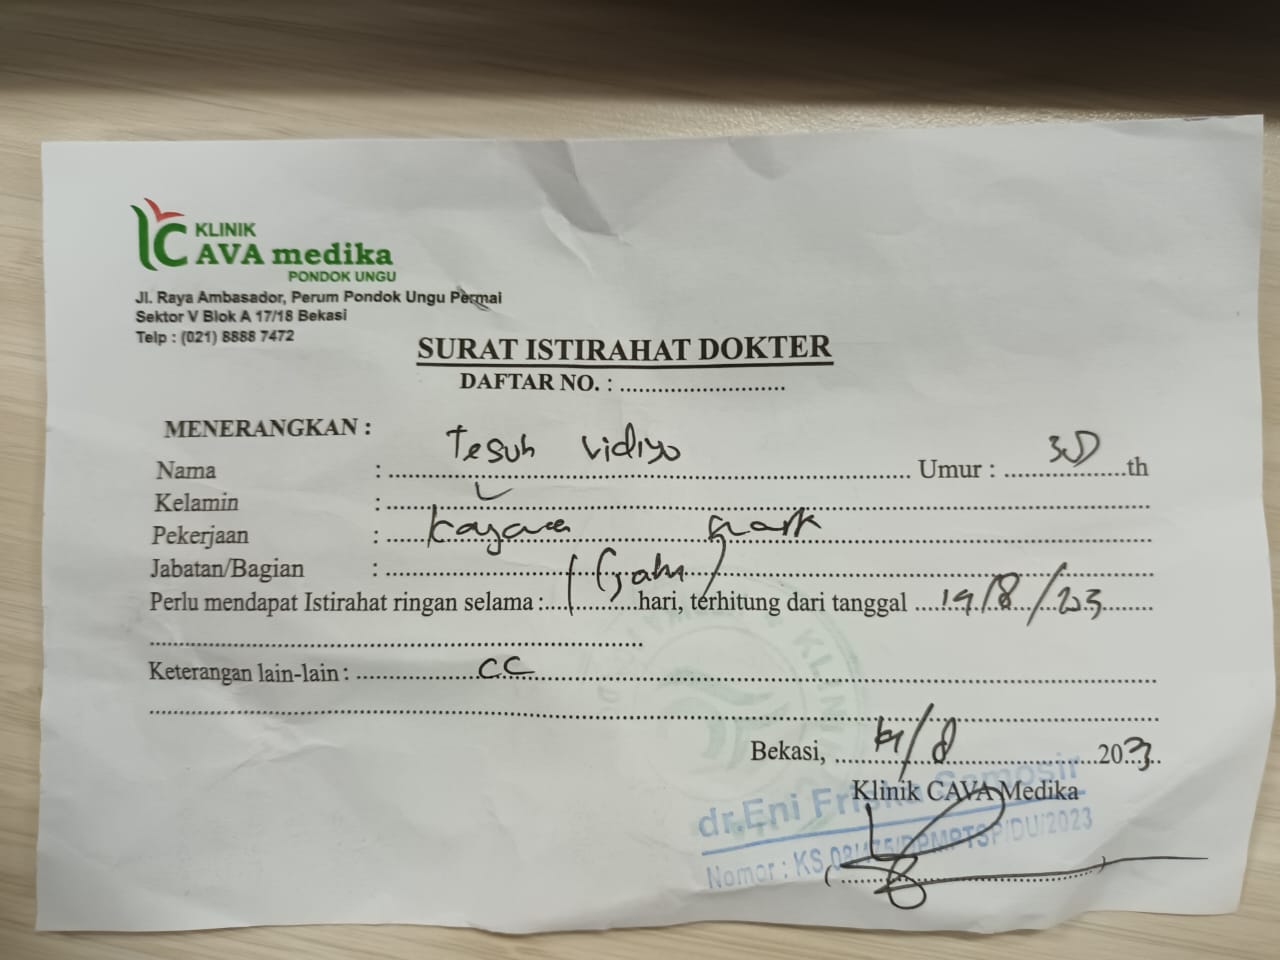 KLINIK
CAVA medika
PONDOK UNGU
Jl. Raya Ambasador, Perum Pondok Ungu Permai
Sektor V Blok A 17/18 Bekasi
Telp : (021) 8888 7472
SURAT ISTIRAHAT DOKTER
DAFTAR NO. : ............................
MENERANGKAN :
Nama : Umur : th
Kelamin : L
Pekerjaan :
Jabatan/Bagian :
Perlu mendapat Istirahat ringan selama : 1 hari, terhitung dari tanggal
Keterangan lain-lain : CC
Bekasi, 2023
Klinik CAVA Medika
dr.Eni Samosir
Nomor : KS /DPMPTSP/DU/2023